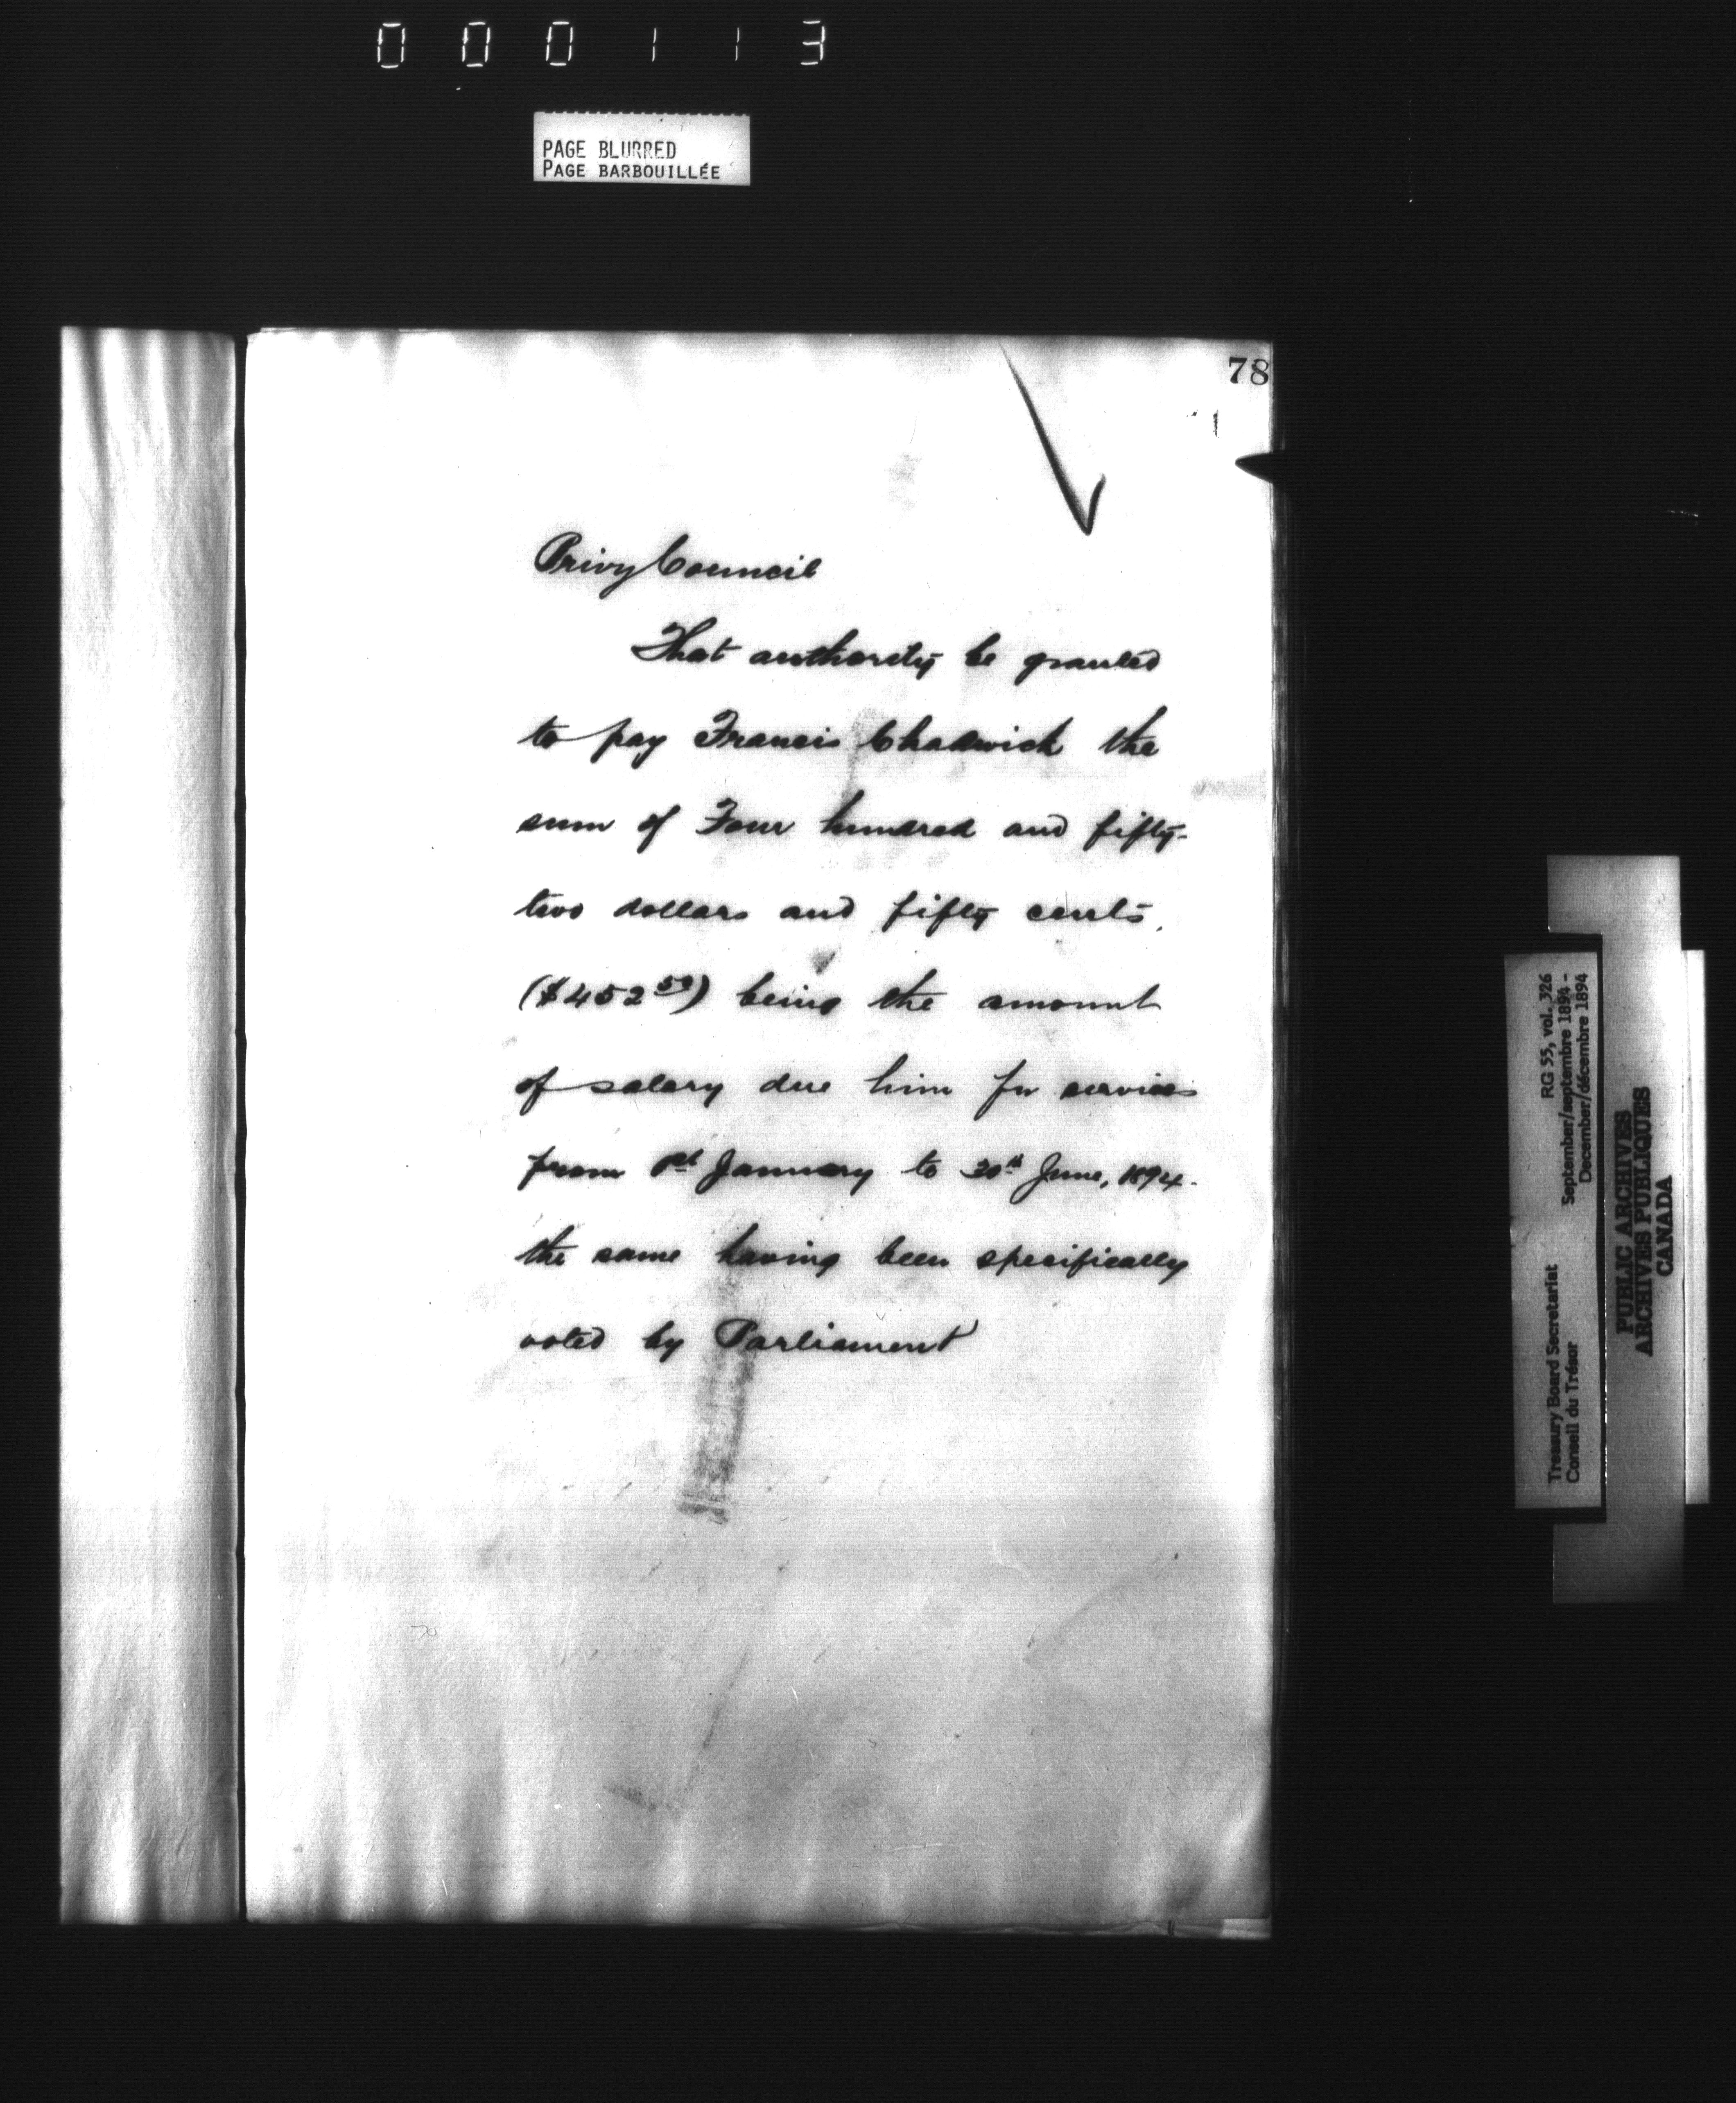 000113
PAGE BLURRED
PAGE BARBOUILLÉE
78
Privy Council
That authority be granted
to pay Francis Chadwick the
sum of Four hundred and fifty-
two dollars and fifty cents.
($452 50) being the amount
of salary due him for services
from 1st January to 30th June, 1894.
the same having been specifically
voted by Parliament
Treasury Board Secretariat RG 55, vol. 326
Conseil du Trésor September/septembre 1894 -
December/décembre 1894
PUBLIC ARCHIVES
ARCHIVES PUBLIQUES
CANADA